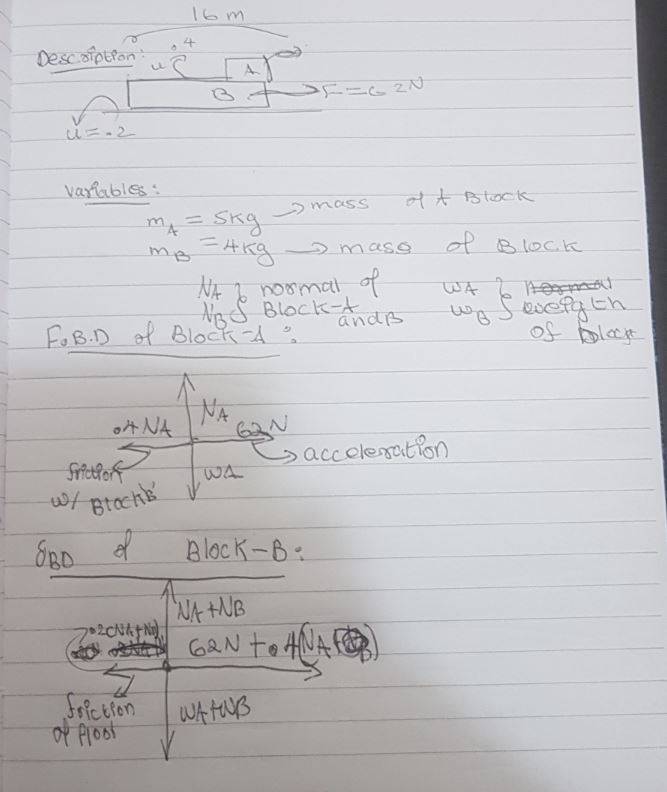 16 m
Description: u .4
A
B F = 62N
u = .2
Variables:
mA = 5kg → mass of A Block
mB = 4kg → mass of Block
NA } normal of WA } normal
NB } Block-A and B WB } weigth of block
F.B.D of Block-A:
NA
.4 NA 62N
→ acceleration
friction WA
w/ Block B
FBD of Block-B:
NA + NB
.2(NA+NB) 62N + .4(NA+B)
friction WA+WB
of floor